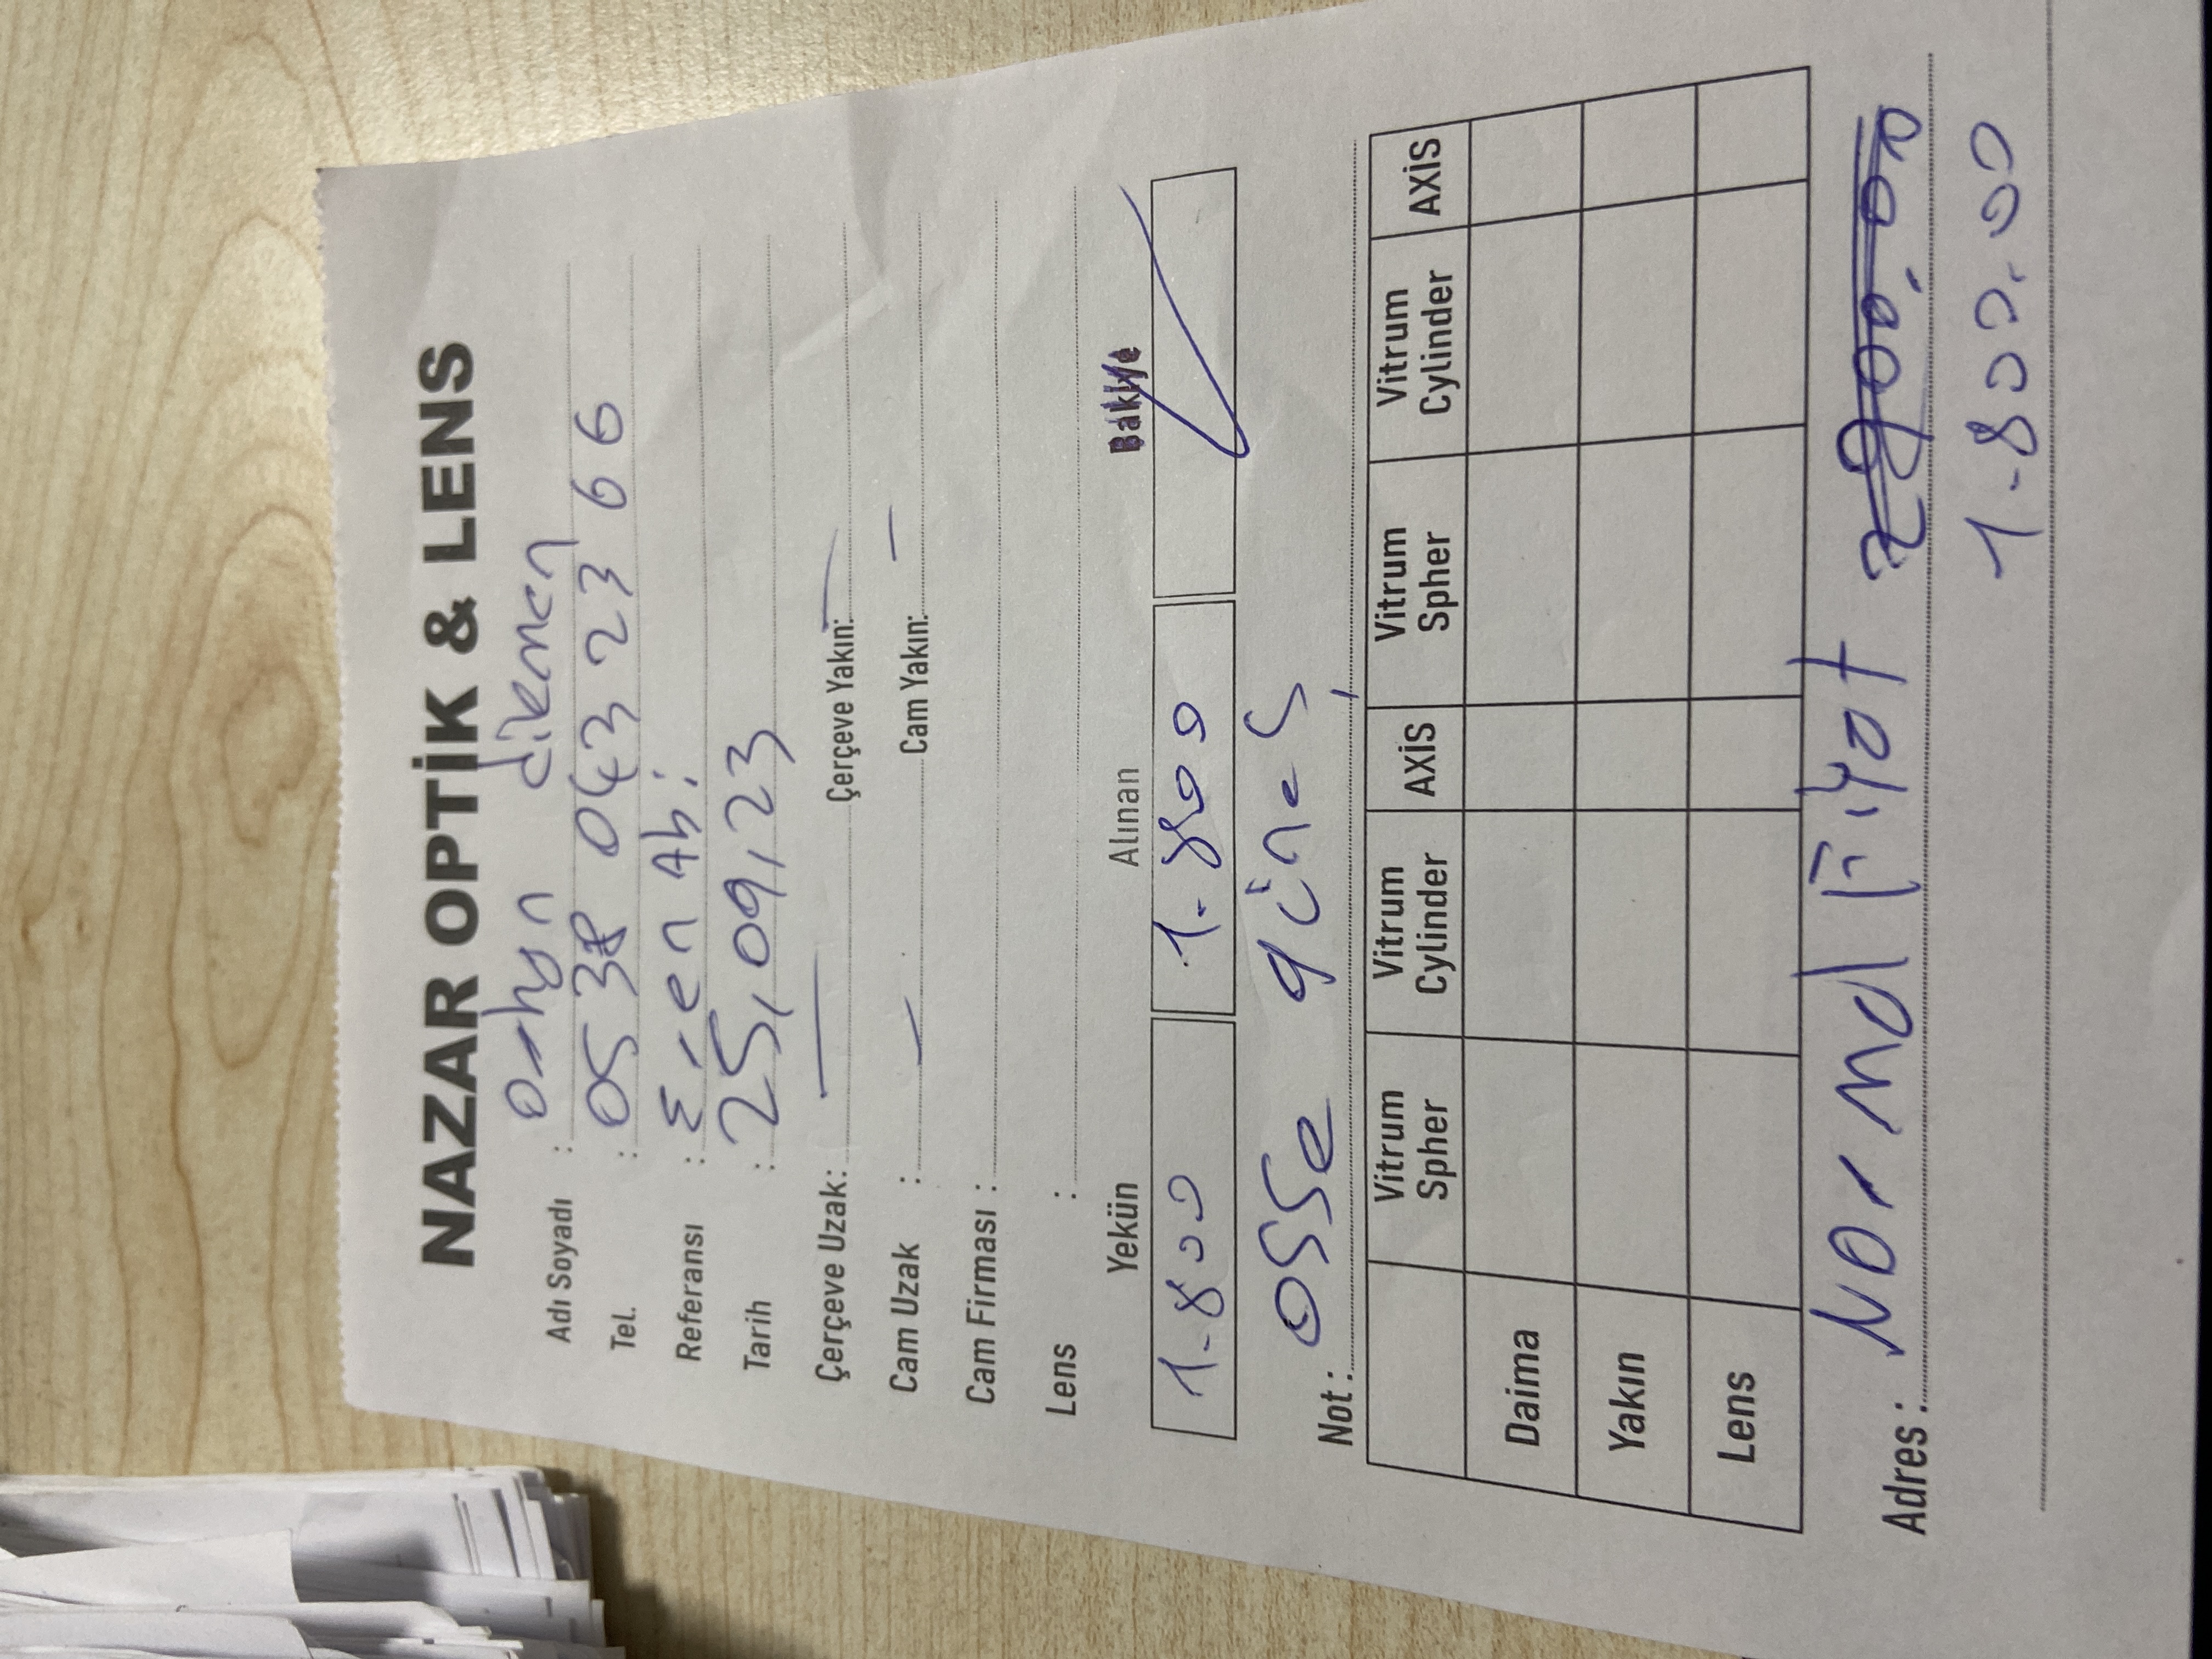 NAZAR OPTİK & LENS
Adı Soyadı : Orhan dikmen
Tel. : 0538 043 23 66
Referansı : Eren Abi
Tarih : 25,09,23
Çerçeve Uzak: — Çerçeve Yakın: —
Cam Uzak : — Cam Yakın: —
Cam Firması :
Lens :
Yekün Alınan Bakiye
1.800 1.800
Not : Osse güneş
Vitrum Spher Vitrum Cylinder AXİS Vitrum Spher Vitrum Cylinder AXİS
Daima
Yakın
Lens
Adres : Normal Fiyat 2900.00
1.800.00